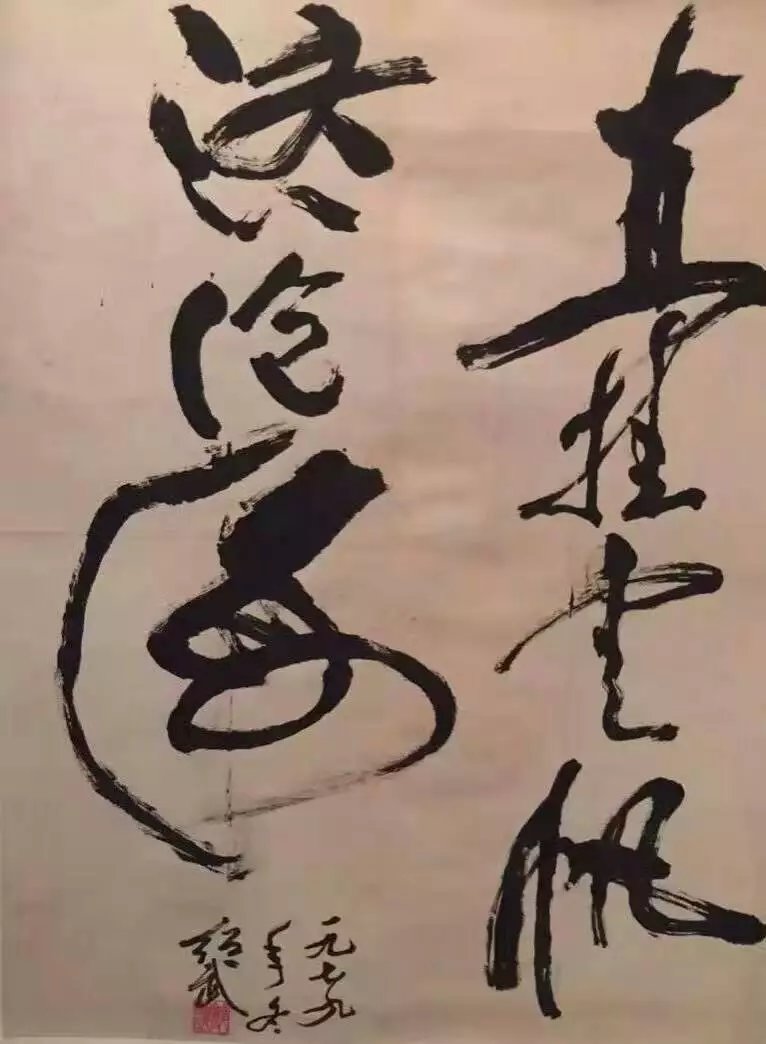 直挂云帆
济沧海
一九七九
年冬
武